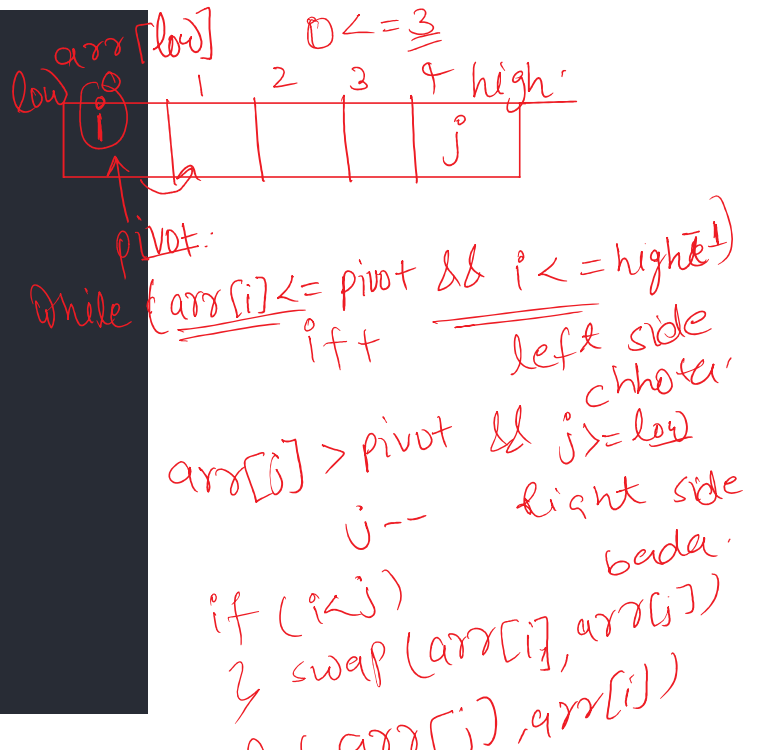 arr[low] 0<=3
low 0 1 2 3 4 high.
i j
pivot.
while (arr[i]<= pivot && i<=high-1)
i++ left side
chhota.
arr[j] > pivot && j>=low
j-- Right side
bada.
if (i<j)
} swap (arr[i], arr[j])
(arr[j], arr[i])